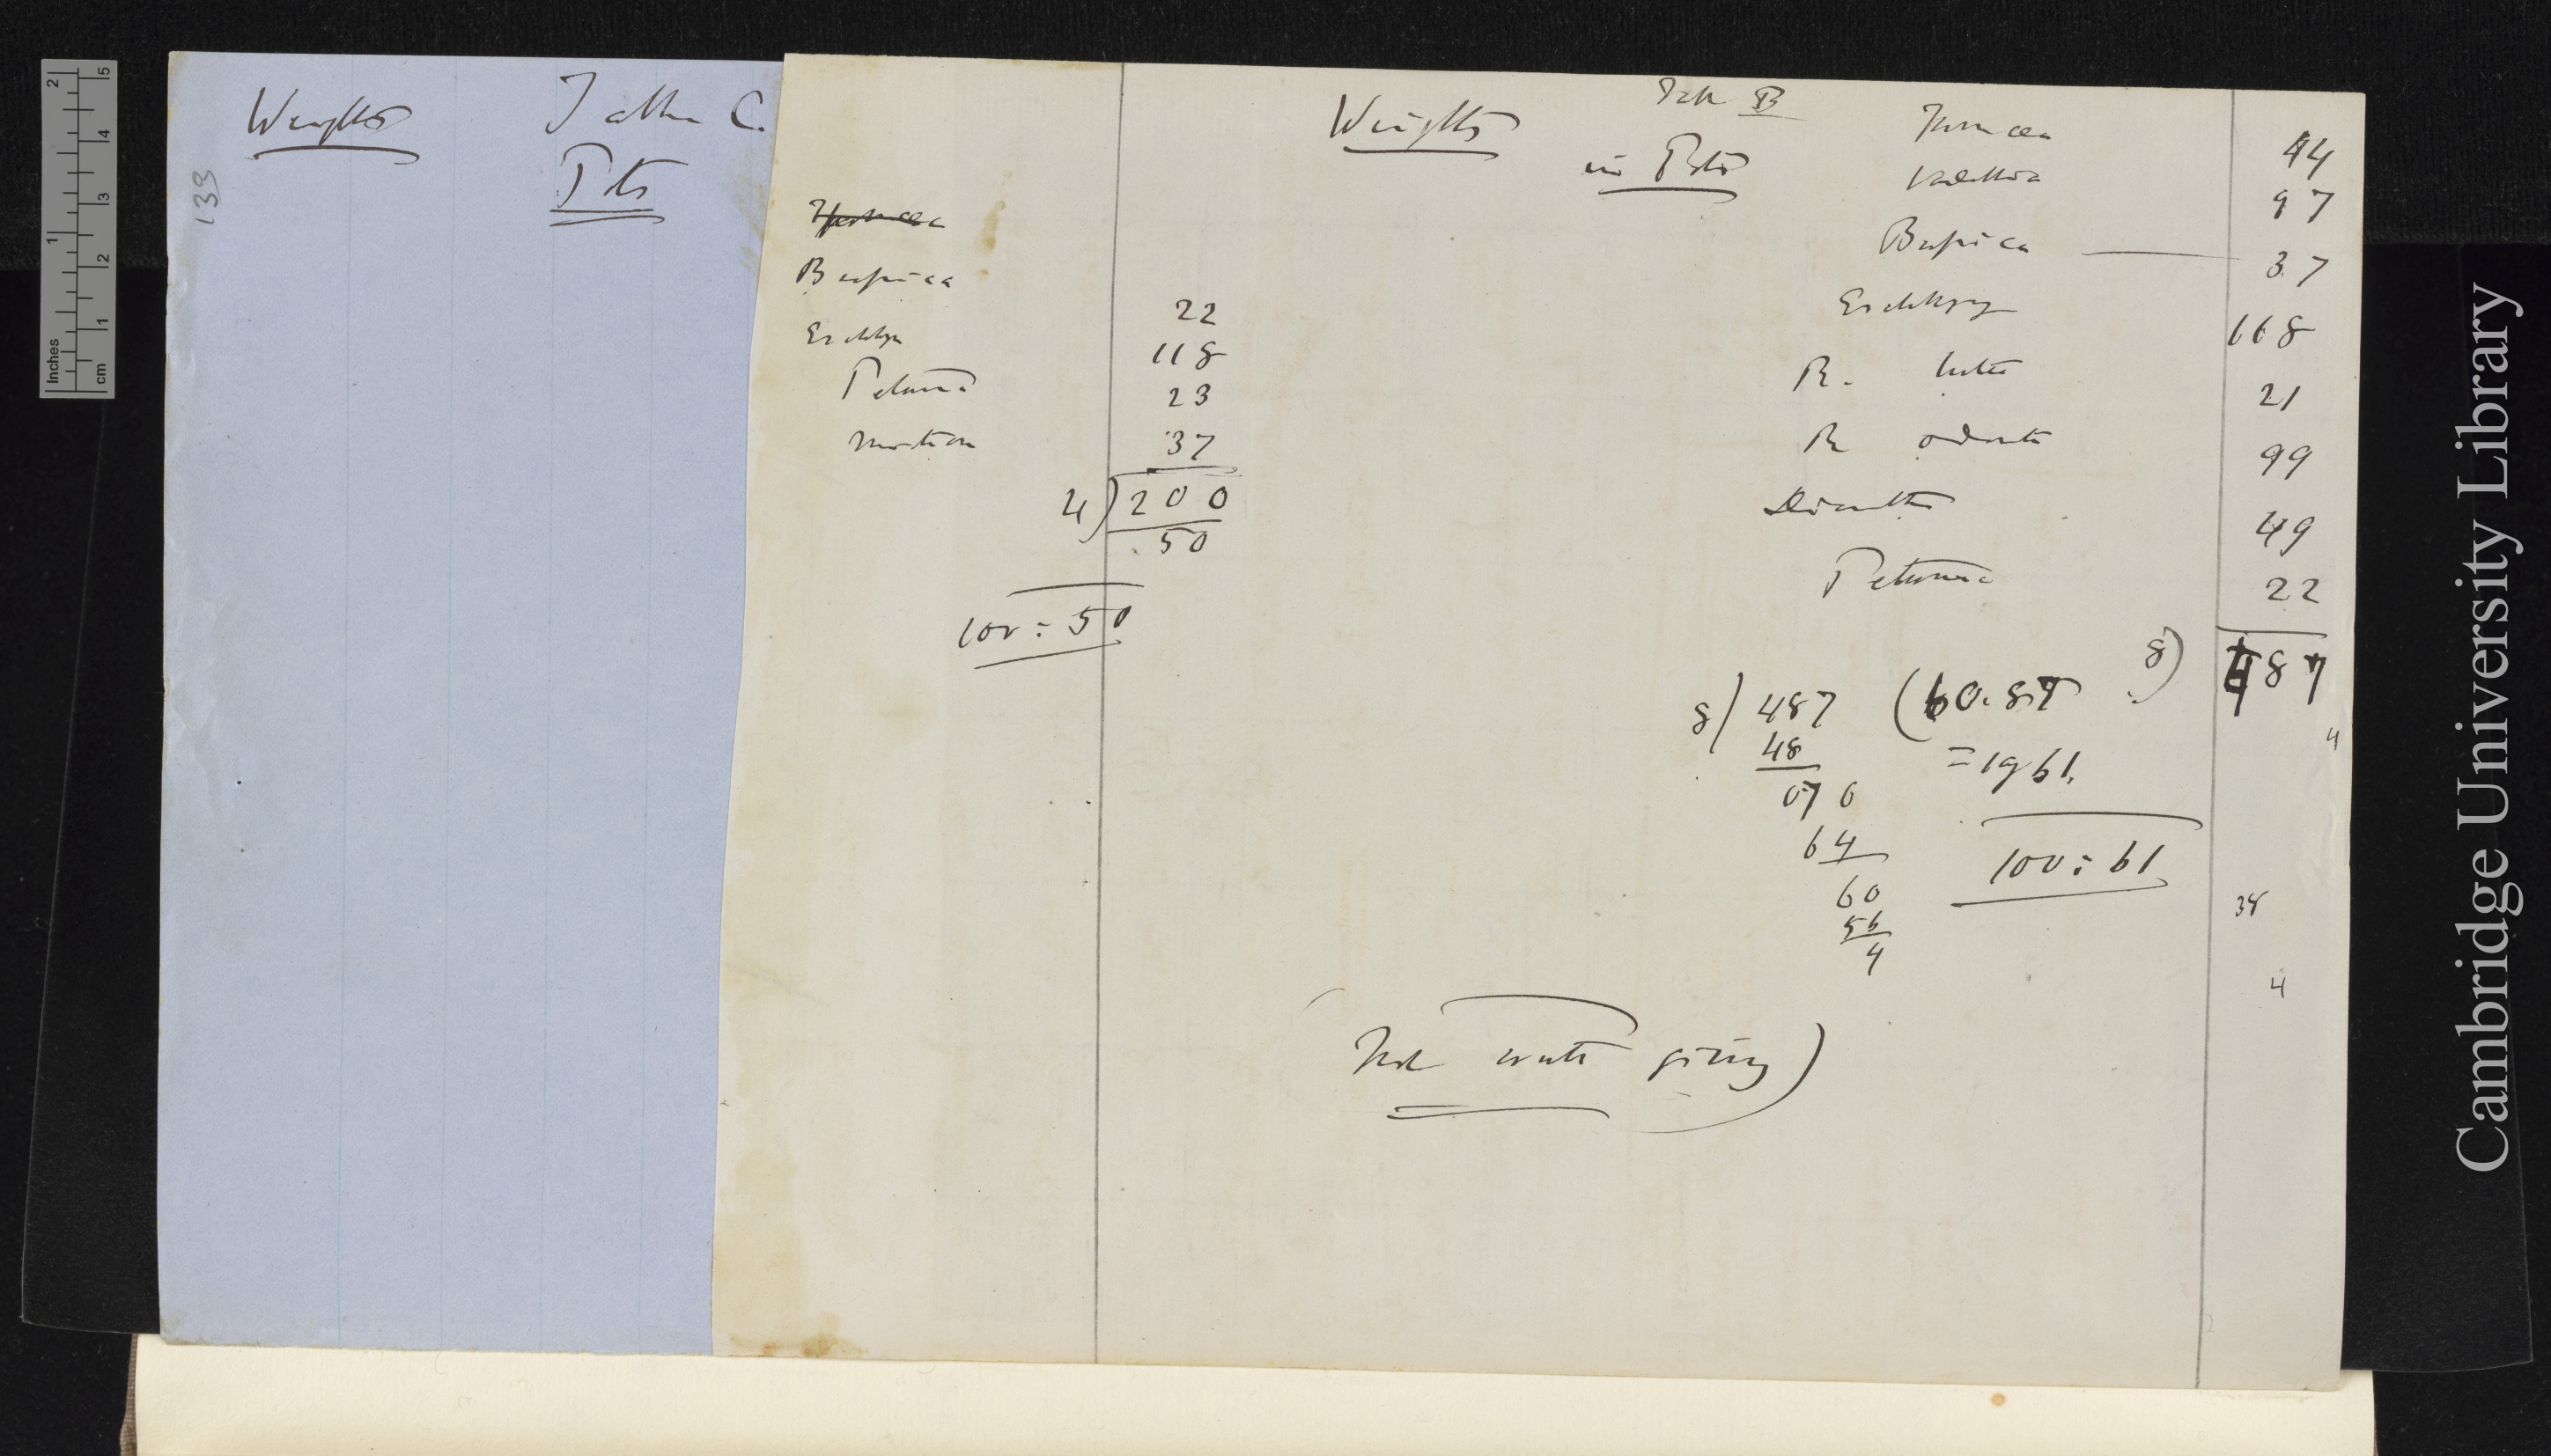 Weights Table C.
Pots
133
Ipomoea
Brassica 22
Eschsch 118
Petunia 23
Nicotian 37
4) 200
50
100 : 50
Weights Table B
in Pots
Ipomoea 44
97
Brassica 37
Eschsch 118
R. lutea 21
R odorata 99
Dianthus 49
Petunia 22
8) 487
4
8) 487 (60.87
48 = 61.
070
64
60
56
4
100 : 61
38
4
Not worth giving)
Inches 1 2
cm 1 2 3 4 5
Cambridge University Library